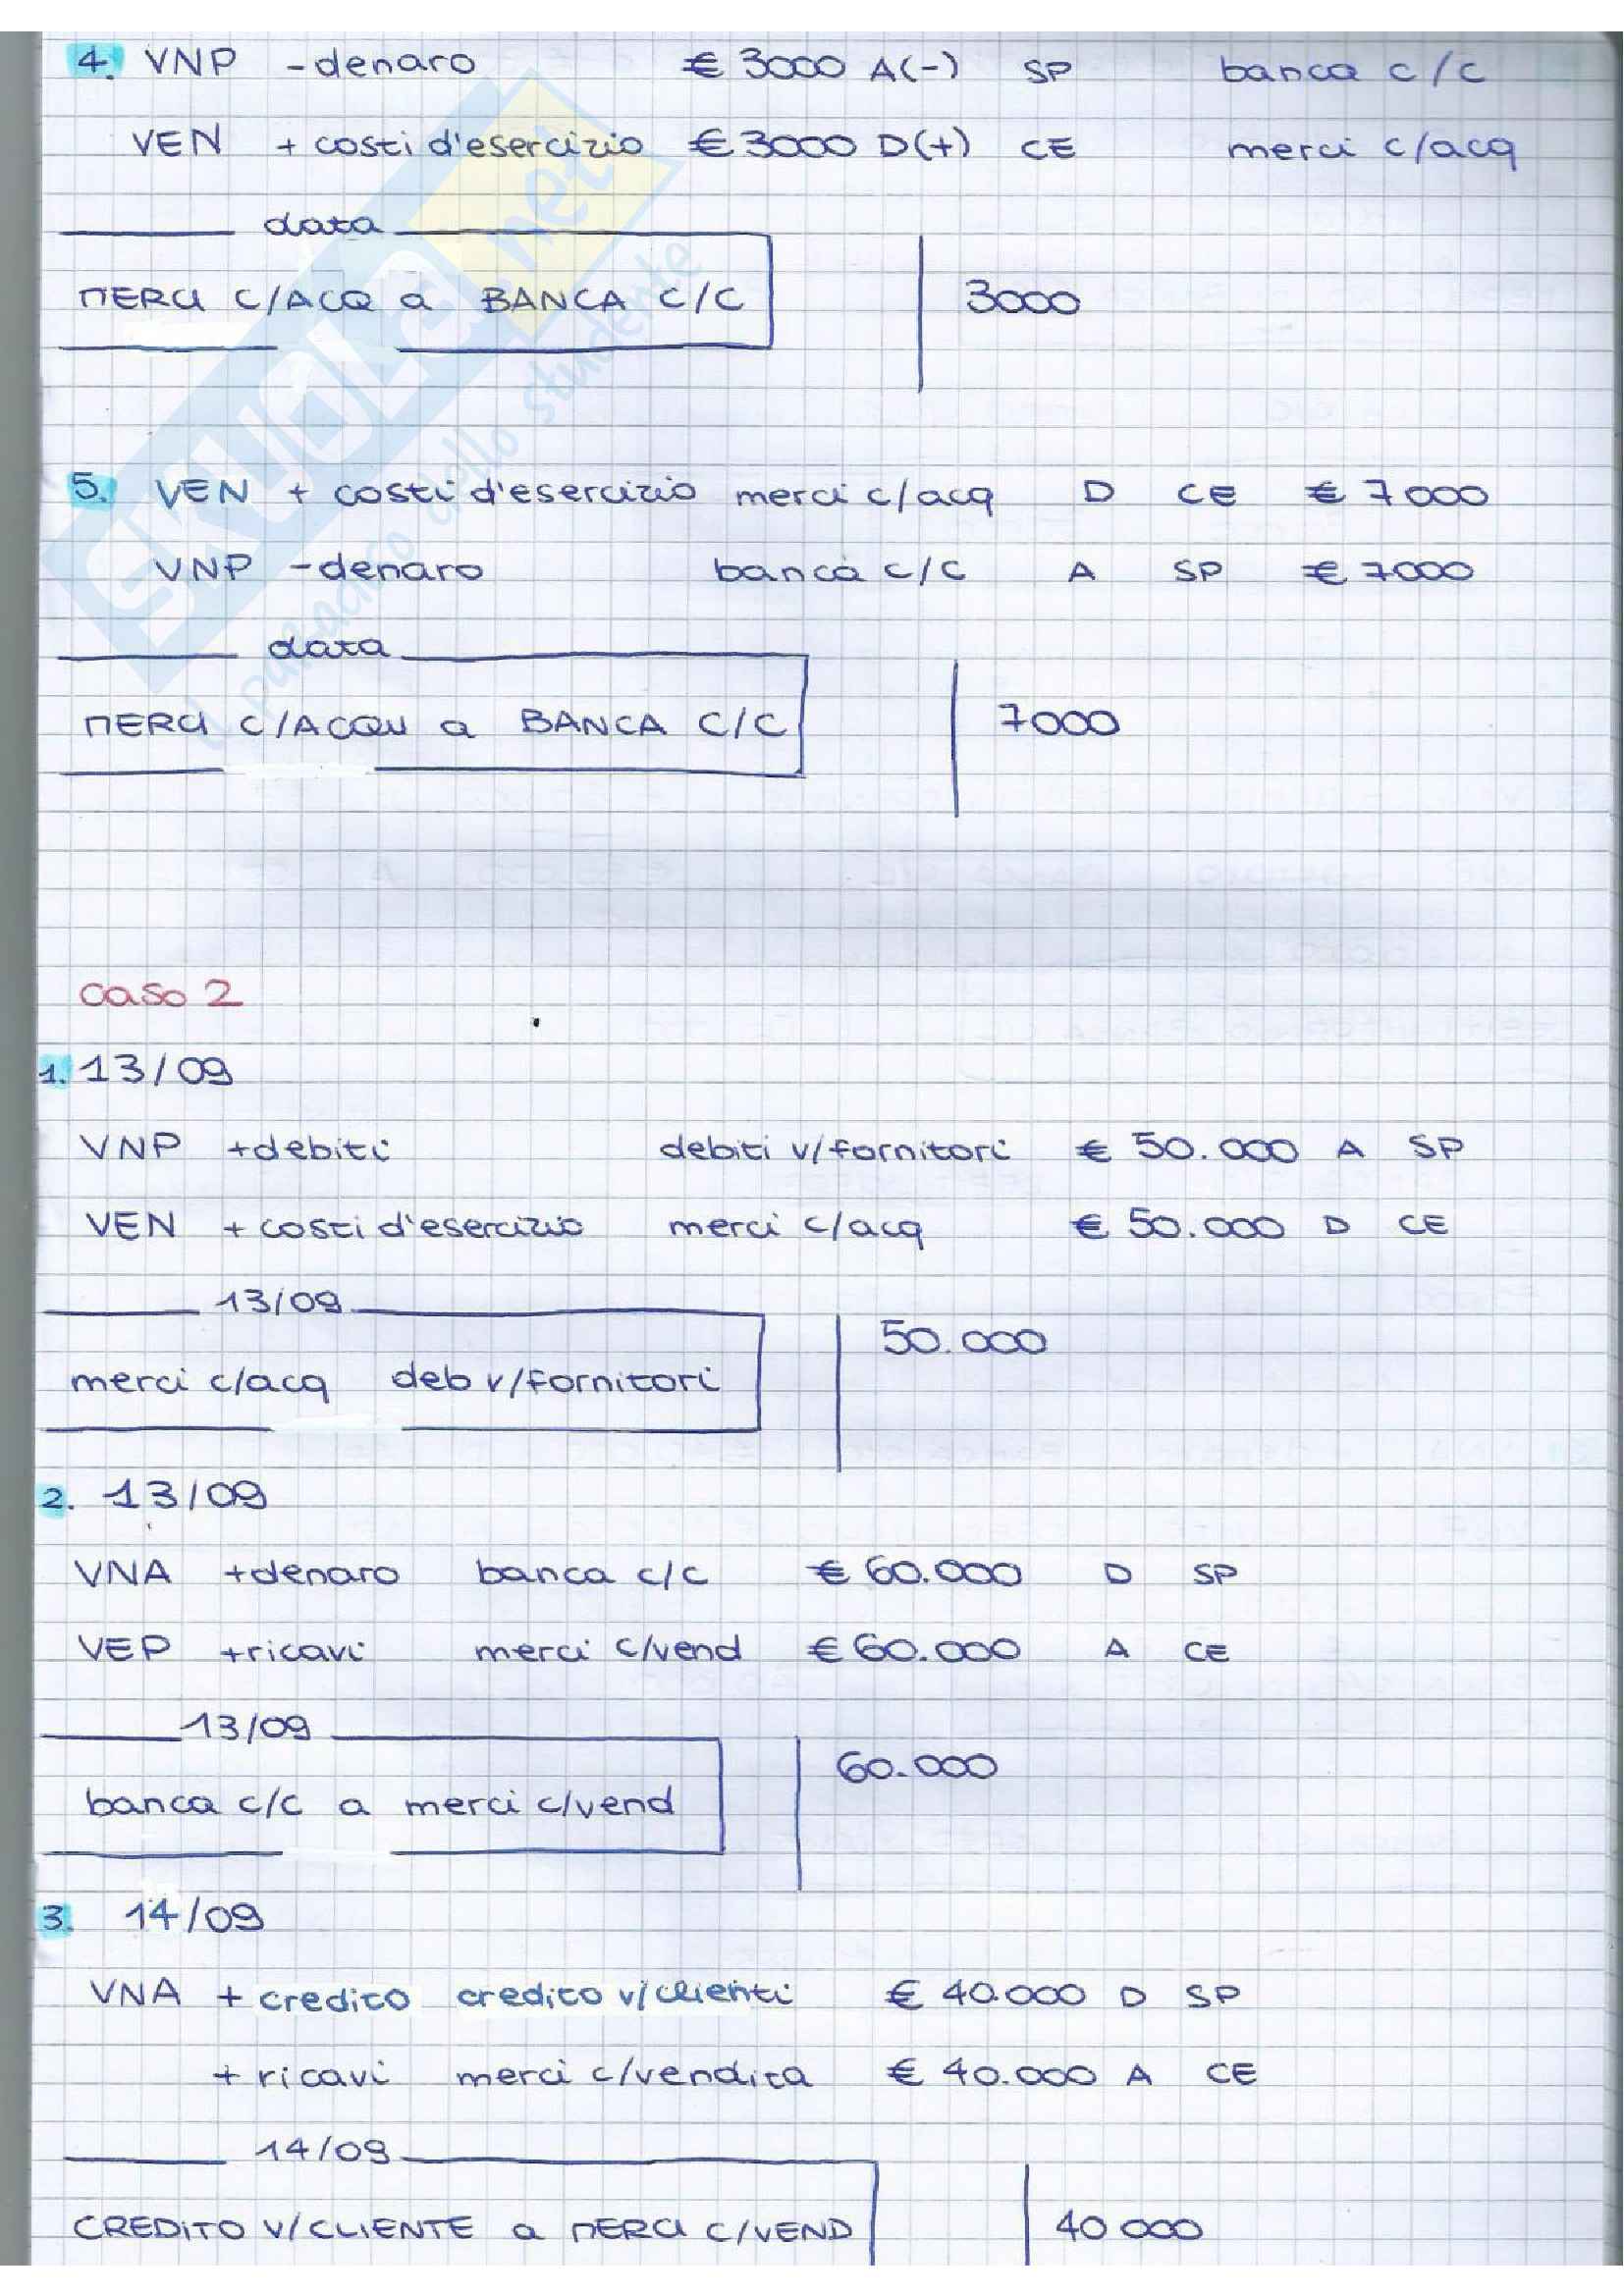 4. VNP - denaro € 3000 A(-) SP banca c/c
VEN + costi d'esercizio € 3000 D(+) CE merci c/acq
data
MERCI C/ACQ a BANCA C/C 3000
5. VEN + costi d'esercizio merci c/acq D CE € 7000
VNP - denaro banca c/c A SP € 7000
data
MERCI C/ACQU a BANCA C/C 7000
caso 2
1. 13/09
VNP + debiti debiti v/fornitori € 50.000 A SP
VEN + costi d'esercizio merci c/acq € 50.000 D CE
13/09
merci c/acq deb v/fornitori 50.000
2. 13/09
VNA + denaro banca c/c € 60.000 D SP
VEP + ricavi merci c/vend € 60.000 A CE
13/09
banca c/c a merci c/vend 60.000
3. 14/09
VNA + credito credito v/clienti € 40.000 D SP
+ ricavi merci c/vendita € 40.000 A CE
14/09
CREDITO V/CLIENTE a MERCI C/VEND 40 000
SKUOLA.net
il paradiso dello studente